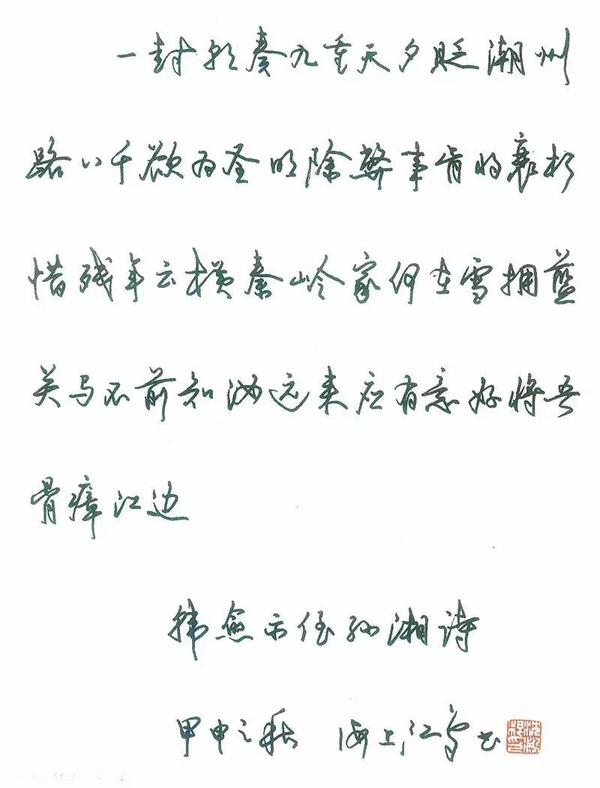 一封朝奏九重天夕贬潮州
路八千欲为圣明除弊事肯将衰朽
惜残年云横秦岭家何在雪拥蓝
关马不前知汝远来应有意好将吾
骨瘴江边
韩愈示侄孙湘诗
甲申之秋 海上江